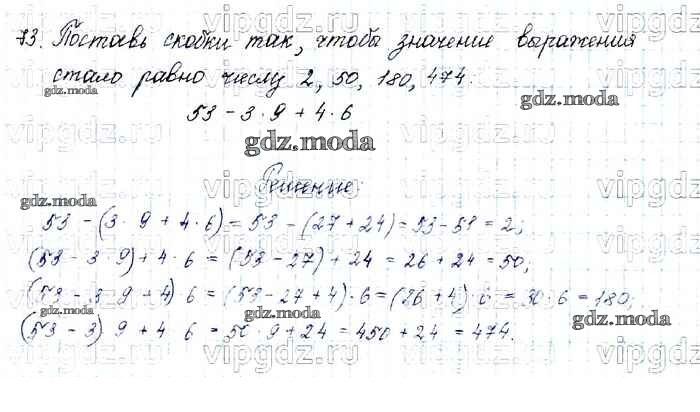 73. Поставь скобки так, чтобы значение выражения
стало равно числу 2, 50, 180, 474.
gdz.moda gdz.moda
53 - 3 · 9 + 4 · 6
gdz.moda
Решение:
gdz.moda
53 - (3 · 9 + 4 · 6) = 53 - (27 + 24) = 53 - 51 = 2;
(53 - 3 · 9) + 4 · 6 = (53 - 27) + 24 = 26 + 24 = 50;
(53 - 3 · 9 + 4) 6 = (53 - 27 + 4) · 6 = (26 + 4) · 6 = 30 · 6 = 180;
gdz.moda gdz.moda
(53 - 3) 9 + 4 6 = 50 · 9 + 24 = 450 + 24 = 474.
vipgdz.ru